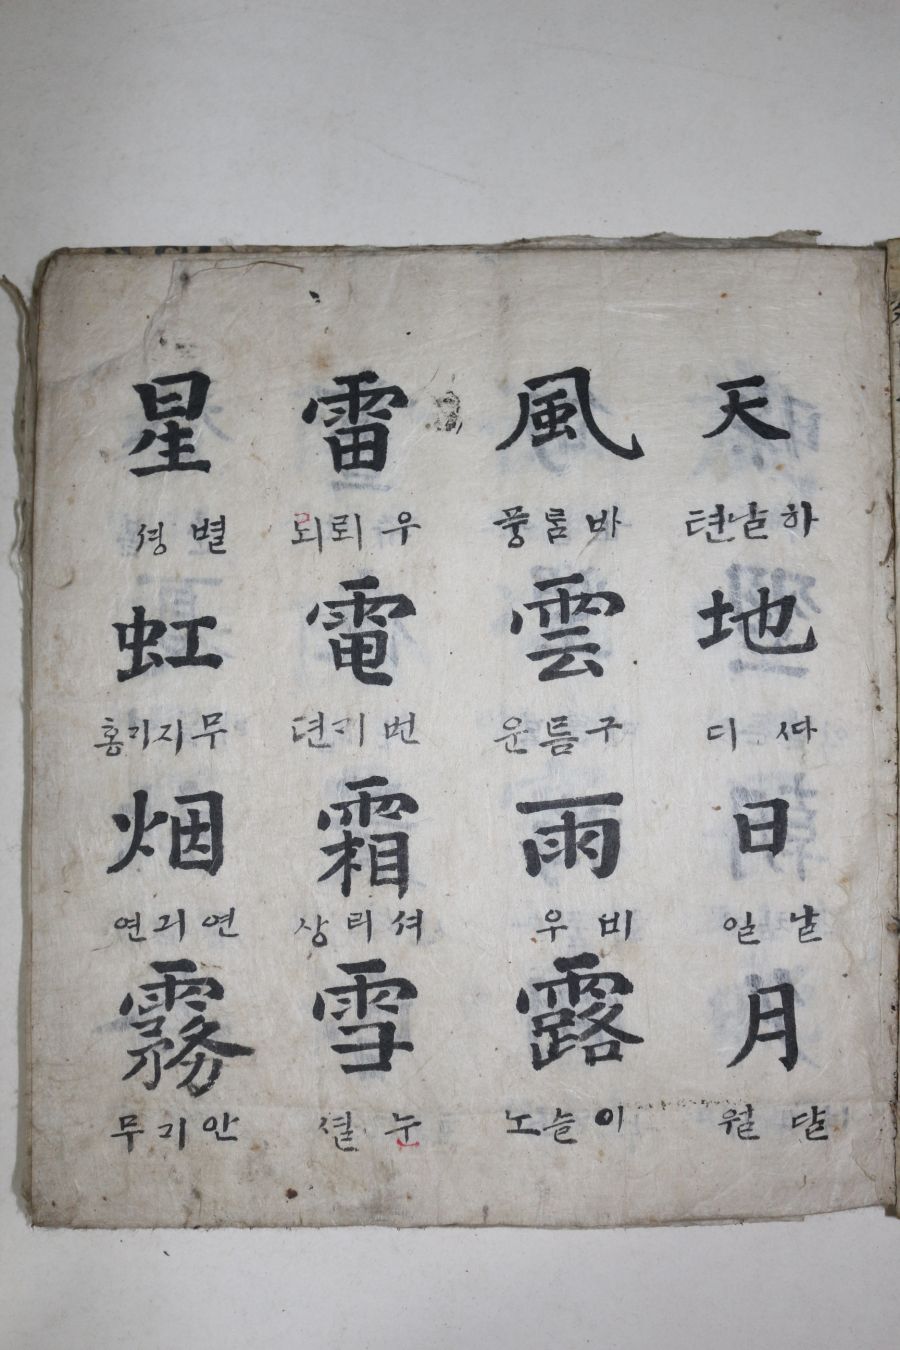 天
하날텬
地
ᄯᅡ디
日
날일
月
달월
風
바룸풍
雲
구름운
雨
비우
露
이슬노
雷
우뢰뢰
電
번기뎐
霜
셔리상
雪
눈셜
星
별셩
虹
무지기홍
烟
연긔연
霧
안기무